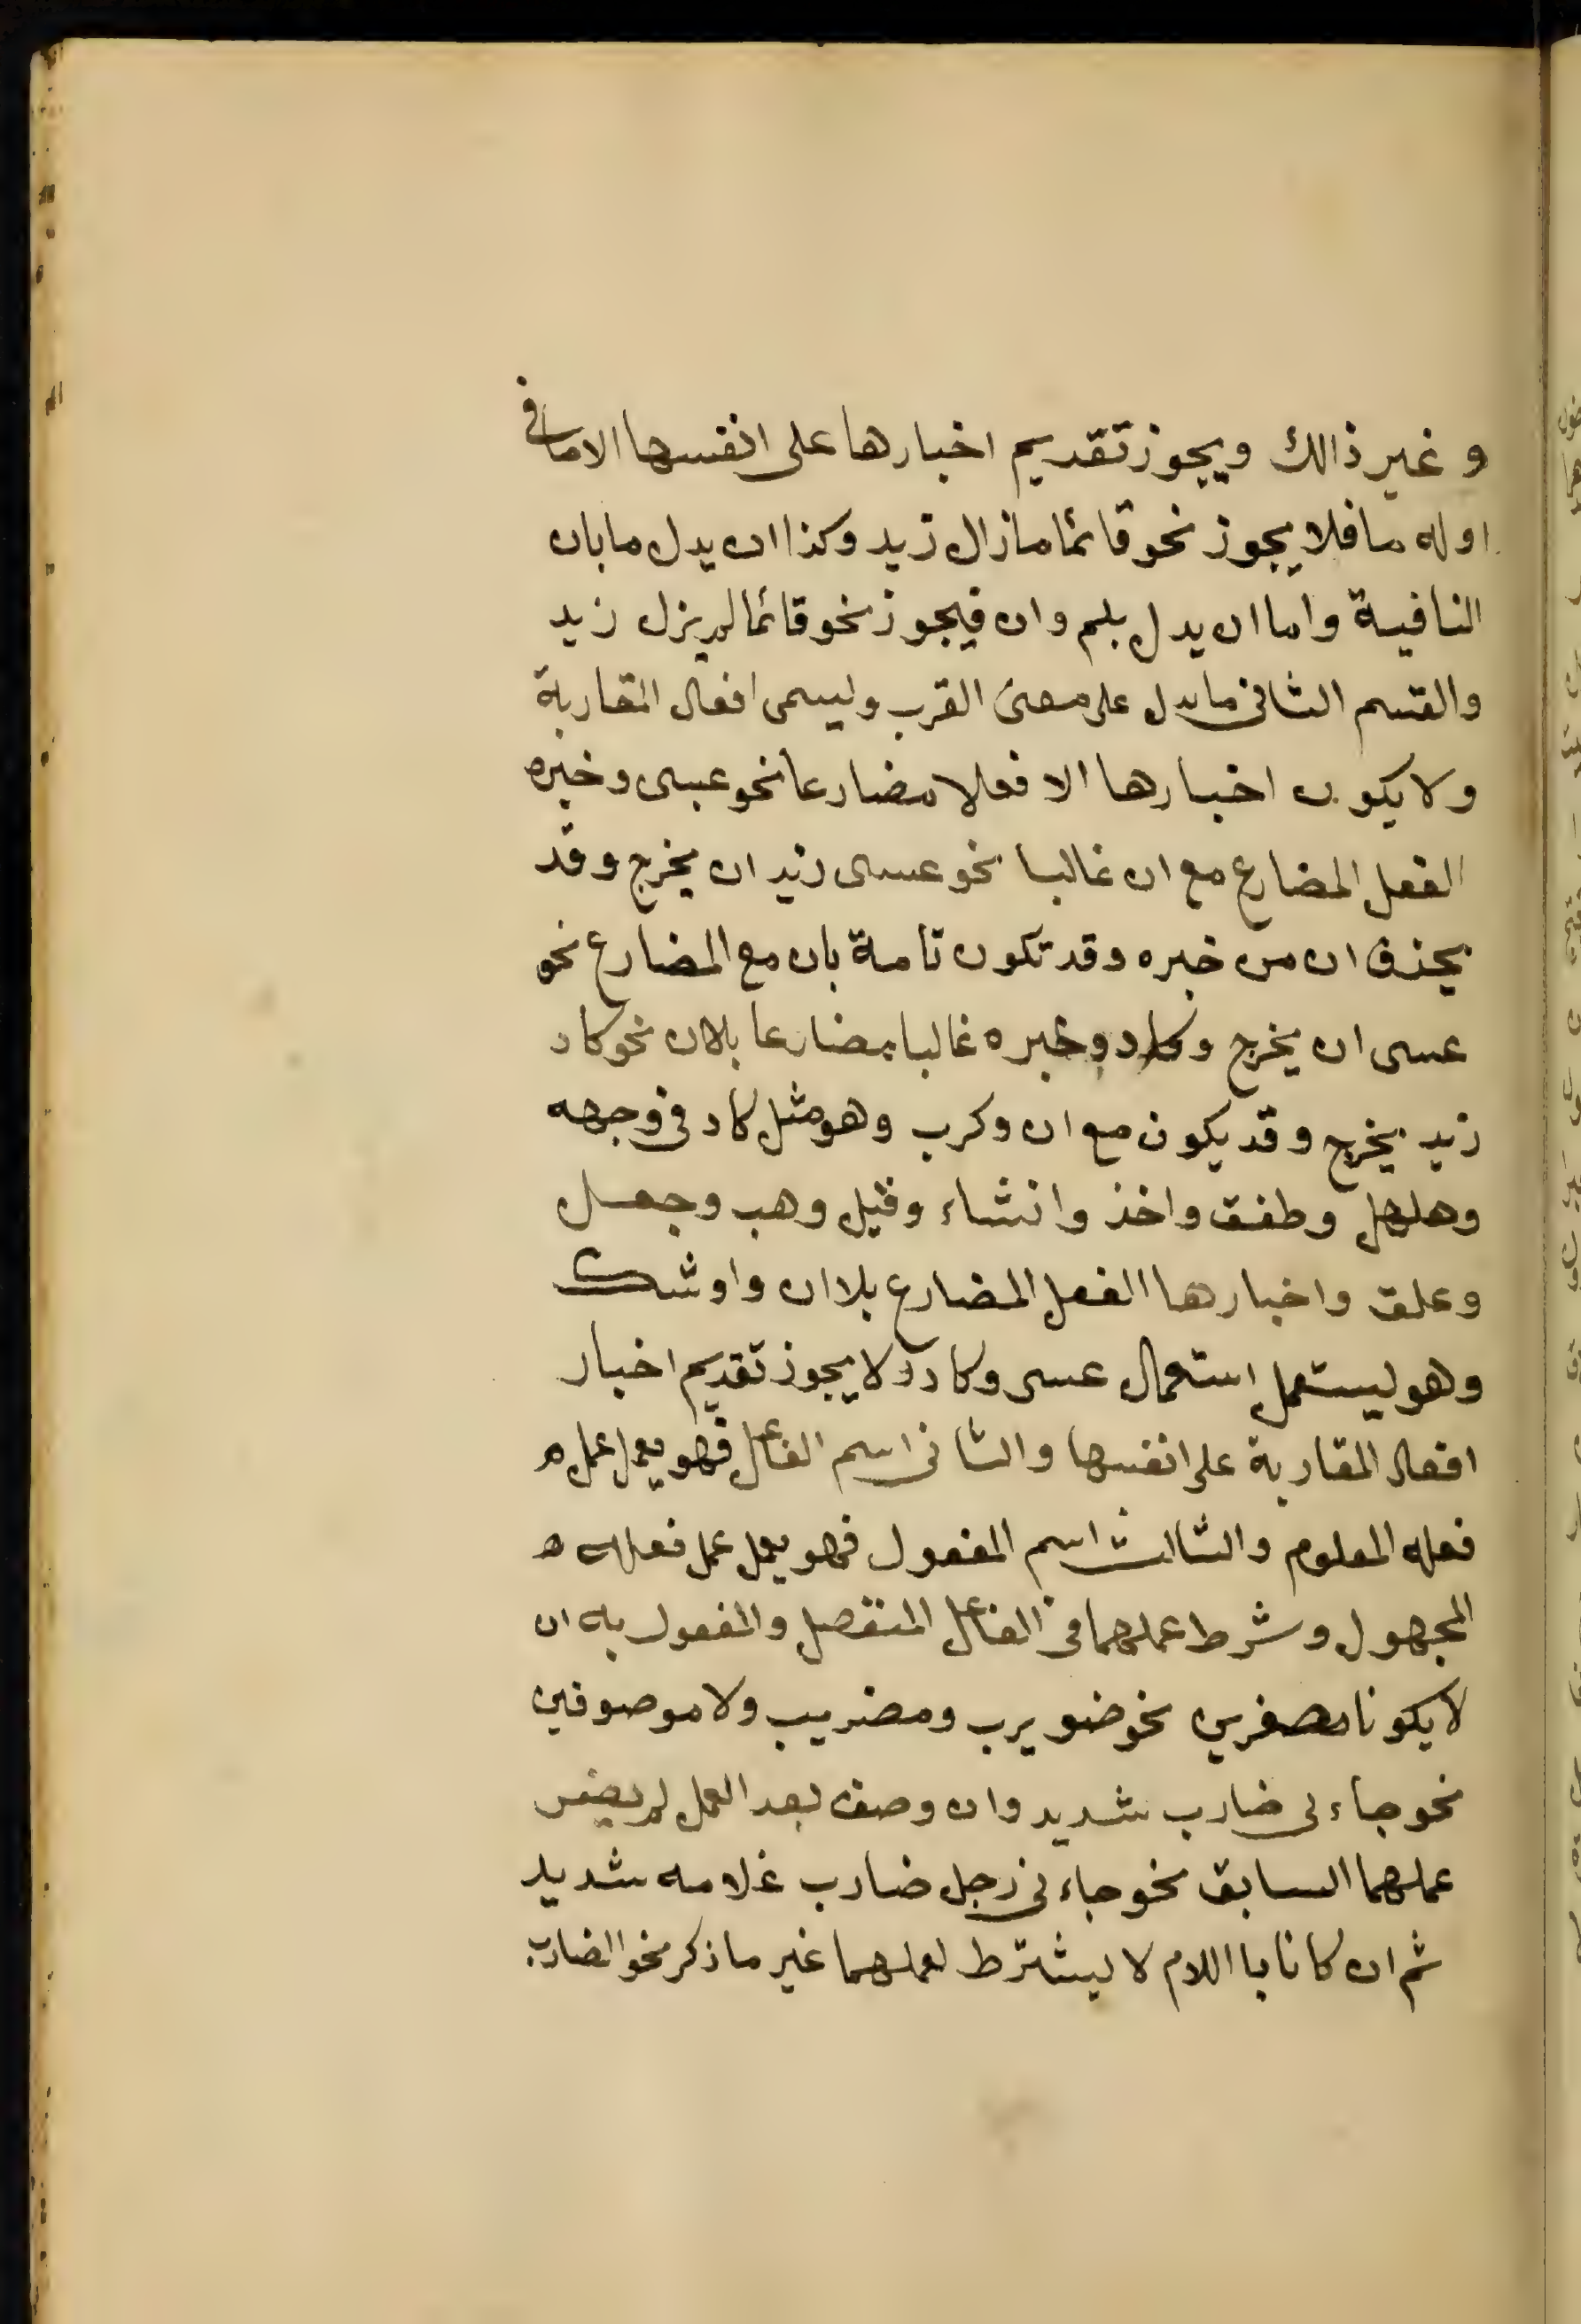 و غير ذالك ويجوز تقديم اخبارها على انفسها الا ما في
اوله ما فلا يجوز نحو قائما مازال زيد وكذا ان يدل ما بان
النافية واما ان يدل بلم وان فيجوز نحو قائما لم يزل زيد
والقسم الثاني ما يدل على معنى القرب وليسمى افعال المقاربة
ولا يكون اخبارها الا فعلا مضارعا نحو عسى وخبره
الفعل المضارع مع ان غالبا نحو عسى زيد ان يخرج وقد
يحذف ان من خبره وقد تكون تامة بان مع المضارع نحو
عسى ان يخرج وكاد وخبره غالبا مضارعا بلا ان نحو كاد
زيد يخرج وقد يكون مع ان وكرب وهو مثل كاد في وجهه
وهلهل وطفق واخذ وانشاء وقيل وهب وجعل
وعلق واخبارها الفعل المضارع بلا ان واوشك
وهو ليستعمل استعمال عسى وكاد ولا يجوز تقديم اخبار
افعال المقاربة على انفسها والثاني اسم الفاعل فهو يعمل عمل ه
فعله المعلوم والثالث اسم المفعول فهو يعمل عمل فعله ه
المجهول وشرط عملهما في الفاعل المنفصل والمفعول به ان
لا يكونا مصغرين نحو ضويرب ومضريب ولا موصوفين
نحو جاءني ضارب شديد وان وصف بعد العمل لم يضر
عملهما السابق نحو جاءني رجل ضارب غلامه شديد
ثم ان كانا باا اللام لا ليشترط لعملهما غير ما ذكر نحو الضارب